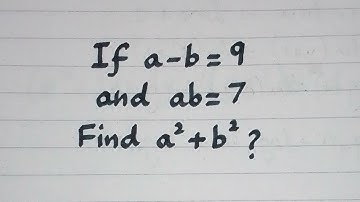 If a-b=9
and ab=7
Find a²+b²?